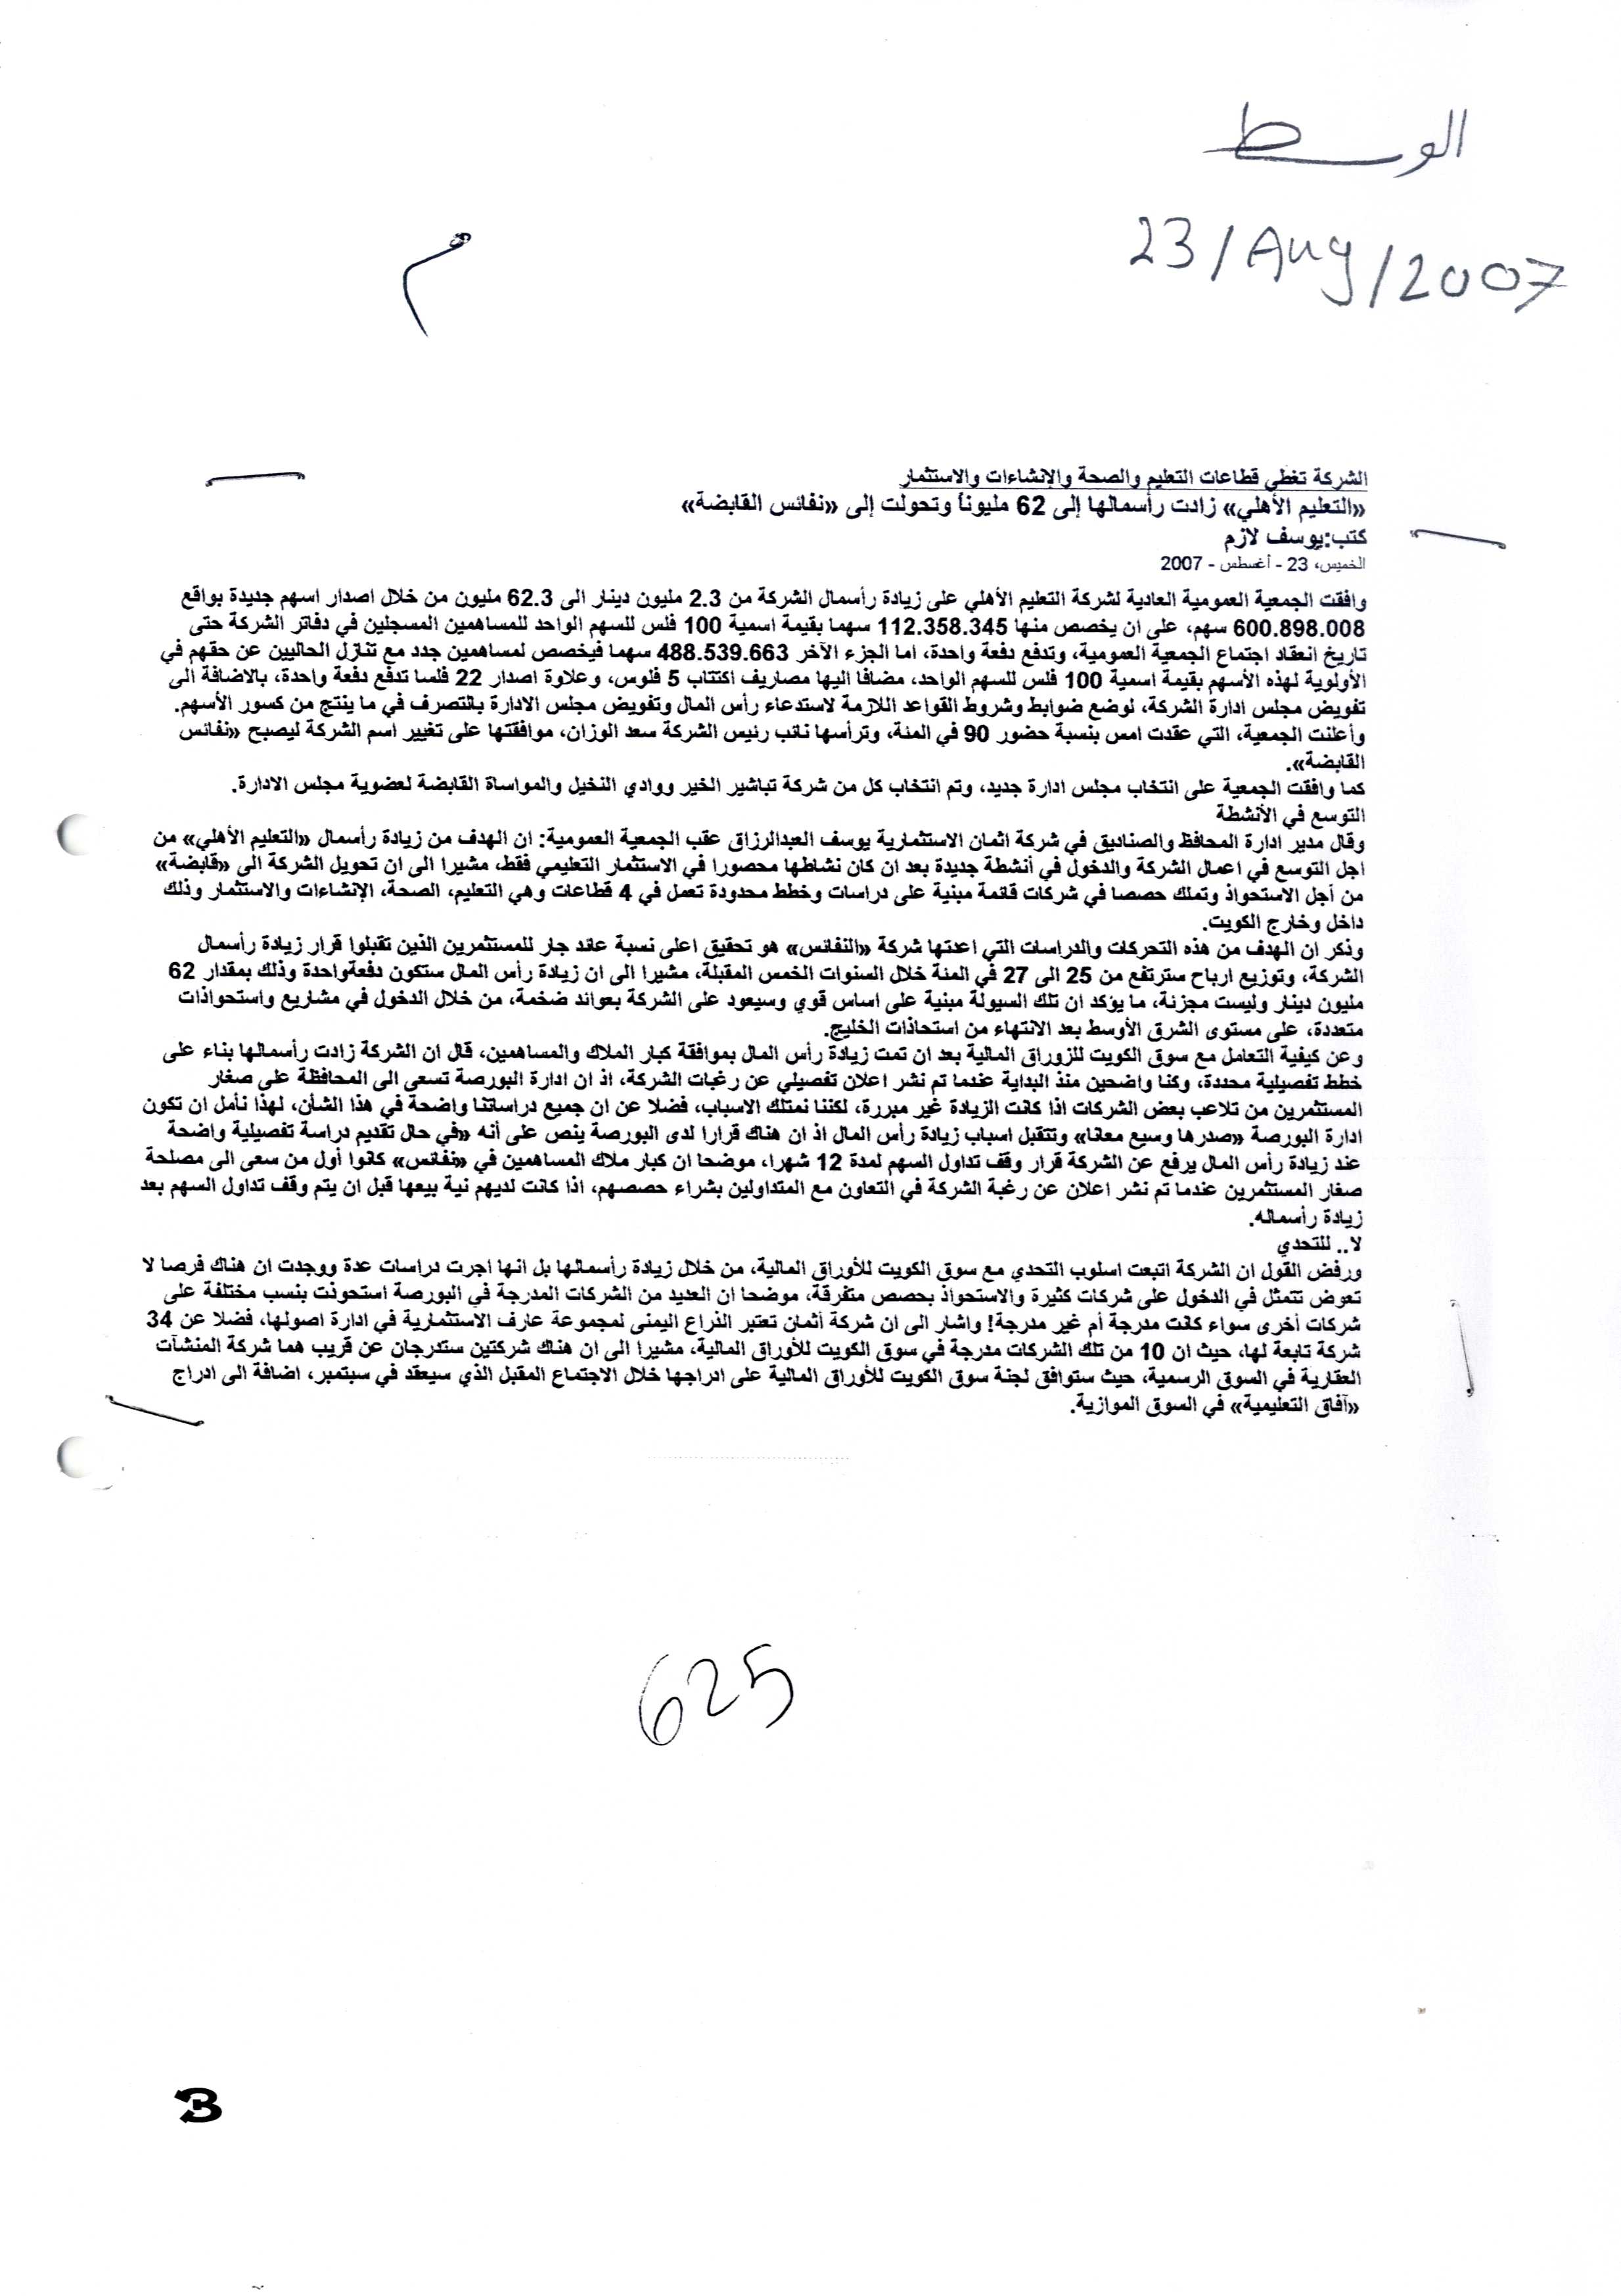 الوسط
23/Aug/2007
م
الشركة تغطي قطاعات التعليم والصحة والإنشاءات والاستثمار
«التعليم الأهلي» زادت رأسمالها إلى 62 مليوناً وتحولت إلى «نفائس القابضة»
كتب:يوسف لازم
الخميس، 23 - أغسطس - 2007
وافقت الجمعية العمومية العادية لشركة التعليم الأهلي على زيادة رأسمال الشركة من 2.3 مليون دينار الى 62.3 مليون من خلال اصدار اسهم جديدة بواقع
600.898.008 سهم، على ان يخصص منها 112.358.345 سهما بقيمة اسمية 100 فلس للسهم الواحد للمساهمين المسجلين في دفاتر الشركة حتى
تاريخ انعقاد اجتماع الجمعية العمومية، وتدفع دفعة واحدة، اما الجزء الآخر 488.539.663 سهما فيخصص لمساهمين جدد مع تنازل الحاليين عن حقهم في
الأولوية لهذه الأسهم بقيمة اسمية 100 فلس للسهم الواحد، مضافا اليها مصاريف اكتتاب 5 فلوس، وعلاوة اصدار 22 فلسا تدفع دفعة واحدة، بالاضافة الى
تفويض مجلس ادارة الشركة، لوضع ضوابط وشروط القواعد اللازمة لاستدعاء رأس المال وتفويض مجلس الادارة بالتصرف في ما ينتج من كسور الأسهم.
وأعلنت الجمعية، التي عقدت امس بنسبة حضور 90 في المئة، وترأسها نائب رئيس الشركة سعد الوزان، موافقتها على تغيير اسم الشركة ليصبح «نفائس
القابضة».
كما وافقت الجمعية على انتخاب مجلس ادارة جديد، وتم انتخاب كل من شركة تباشير الخير ووادي النخيل والمواساة القابضة لعضوية مجلس الادارة.
التوسع في الأنشطة
وقال مدير ادارة المحافظ والصناديق في شركة اثمان الاستثمارية يوسف العبدالرزاق عقب الجمعية العمومية: ان الهدف من زيادة رأسمال «التعليم الأهلي» من
اجل التوسع في اعمال الشركة والدخول في أنشطة جديدة بعد ان كان نشاطها محصورا في الاستثمار التعليمي فقط، مشيرا الى ان تحويل الشركة الى «قابضة»
من أجل الاستحواذ وتملك حصصا في شركات قائمة مبنية على دراسات وخطط محدودة تعمل في 4 قطاعات وهي التعليم، الصحة، الإنشاءات والاستثمار وذلك
داخل وخارج الكويت.
وذكر ان الهدف من هذه التحركات والدراسات التي اعدتها شركة «النفائس» هو تحقيق اعلى نسبة عائد جار للمستثمرين الذين تقبلوا قرار زيادة رأسمال
الشركة، وتوزيع ارباح سترتفع من 25 الى 27 في المئة خلال السنوات الخمس المقبلة، مشيرا الى ان زيادة رأس المال ستكون دفعةواحدة وذلك بمقدار 62
مليون دينار وليست مجزئة، ما يؤكد ان تلك السيولة مبنية على اساس قوي وسيعود على الشركة بعوائد ضخمة، من خلال الدخول في مشاريع واستحواذات
متعددة، على مستوى الشرق الأوسط بعد الانتهاء من استحاذات الخليج.
وعن كيفية التعامل مع سوق الكويت للزوراق المالية بعد ان تمت زيادة رأس المال بموافقة كبار الملاك والمساهمين، قال ان الشركة زادت رأسمالها بناء على
خطط تفصيلية محددة، وكنا واضحين منذ البداية عندما تم نشر اعلان تفصيلي عن رغبات الشركة، اذ ان ادارة البورصة تسعى الى المحافظة على صغار
المستثمرين من تلاعب بعض الشركات اذا كانت الزيادة غير مبررة، لكننا نمتلك الاسباب، فضلا عن ان جميع دراساتنا واضحة في هذا الشأن، لهذا نأمل ان تكون
ادارة البورصة «صدرها وسيع معانا» وتتقبل اسباب زيادة رأس المال اذ ان هناك قرارا لدى البورصة ينص على أنه «في حال تقديم دراسة تفصيلية واضحة
عند زيادة رأس المال يرفع عن الشركة قرار وقف تداول السهم لمدة 12 شهرا، موضحا ان كبار ملاك المساهمين في «نفائس» كانوا أول من سعى الى مصلحة
صغار المستثمرين عندما تم نشر اعلان عن رغبة الشركة في التعاون مع المتداولين بشراء حصصهم، اذا كانت لديهم نية بيعها قبل ان يتم وقف تداول السهم بعد
زيادة رأسماله.
لا.. للتحدي
ورفض القول ان الشركة اتبعت اسلوب التحدي مع سوق الكويت للأوراق المالية، من خلال زيادة رأسمالها بل انها اجرت دراسات عدة ووجدت ان هناك فرصا لا
تعوض تتمثل في الدخول على شركات كثيرة والاستحواذ بحصص متفرقة، موضحا ان العديد من الشركات المدرجة في البورصة استحوذت بنسب مختلفة على
شركات أخرى سواء كانت مدرجة أم غير مدرجة! واشار الى ان شركة أثمان تعتبر الذراع اليمنى لمجموعة عارف الاستثمارية في ادارة اصولها، فضلا عن 34
شركة تابعة لها، حيث ان 10 من تلك الشركات مدرجة في سوق الكويت للأوراق المالية، مشيرا الى ان هناك شركتين ستدرجان عن قريب هما شركة المنشآت
العقارية في السوق الرسمية، حيث ستوافق لجنة سوق الكويت للأوراق المالية على ادراجها خلال الاجتماع المقبل الذي سيعقد في سبتمبر، اضافة الى ادراج
«آفاق التعليمية» في السوق الموازية.
625
3